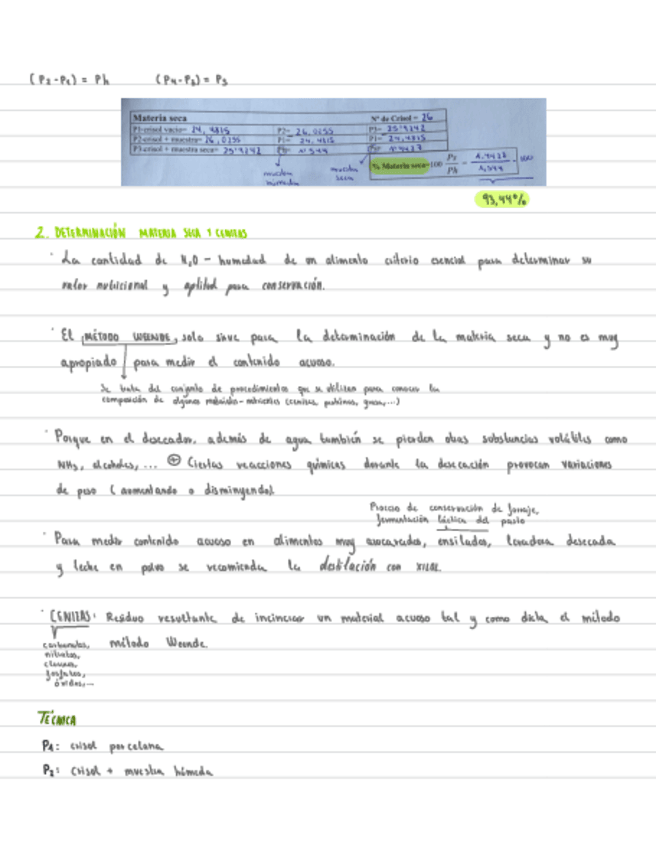 (P2-P1) = Ph (P4-P3) = Ps
Materia seca Nº de Crisol = 26
P1=crisol vacío= 24,4815 P2= 26,0255 P3= 25'9242
P2=crisol + muestra= 26,0255 P1= 24,4815 P1= 24,4815
P3=crisol + muestra seca= 25'9242 Ph=
muestra húmeda muestra seca % Materia seca=100 Ps/Ph =
93,44%
2. DETERMINACIÓN MATERIA SECA Y CENIZAS
· La cantidad de H2O - humedad de un alimento criterio esencial para determinar su
valor nutricional y aptitud para conservación.
· El MÉTODO WEENDE, solo sirve para la determinación de la materia seca y no es muy
apropiado para medir el contenido acuoso.
Se trata del conjunto de procedimientos que se utilizan para conocer la
composición de algunos materiales-nutrientes (cenizas, proteínas, grasa,...)
· Porque en el desecador, además de agua también se pierden otras substancias volátiles como
NH3, alcoholes, ... ⊕ Ciertas reacciones químicas durante la desecación provocan variaciones
de peso (aumentando o disminuyendo).
Proceso de conservación de forraje,
fermentación láctica del pasto
· Para medir contenido acuoso en alimentos muy azucarados, ensilados, levadura desecada
y leche en polvo se recomienda la destilación con XILOL.
· CENIZAS: Residuo resultante de incinerar un material acuoso tal y como dicta el método
método Weende.
carbonatos,
nitratos,
cloruros,
fosfatos,
óxidos,...
TÉCNICA
P1: crisol porcelana
P2: crisol + muestra húmeda